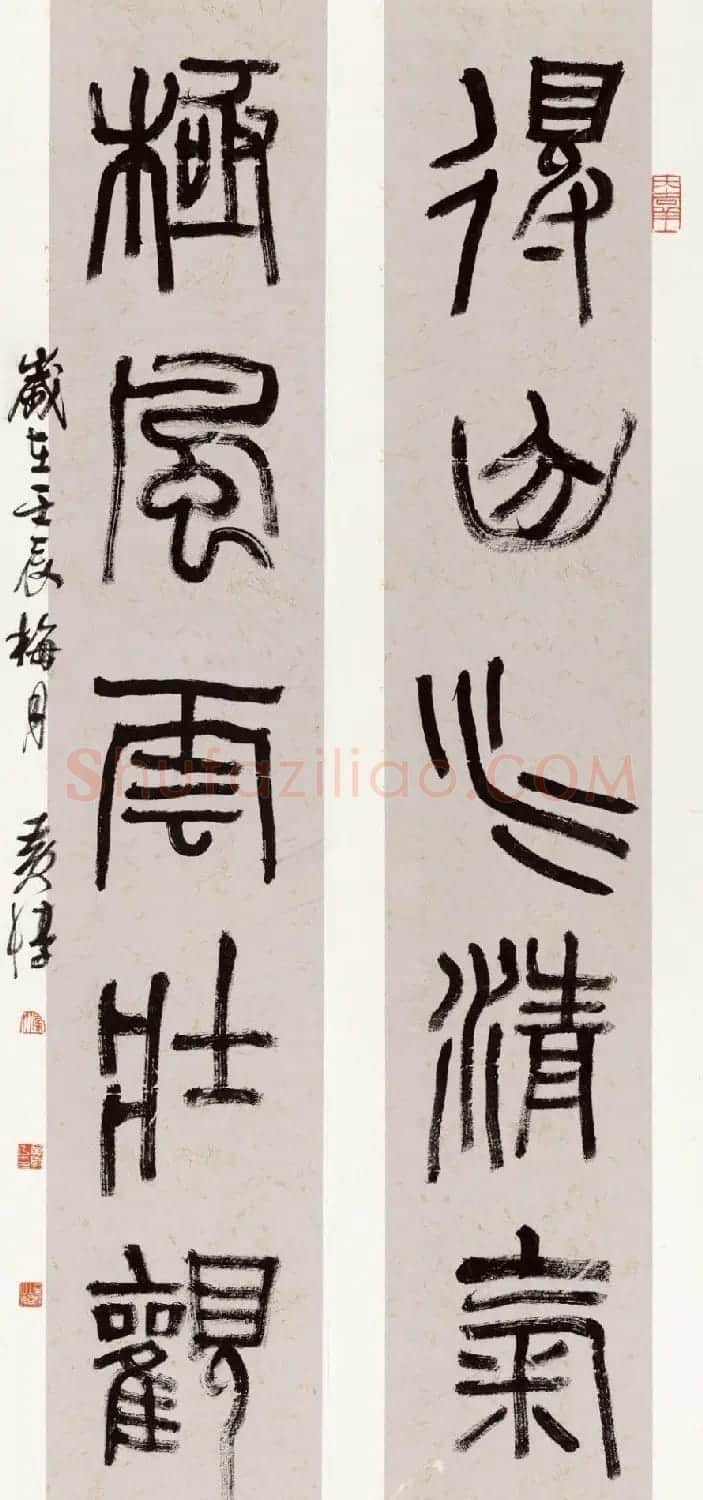 得山水清氣
極風雲壯觀
歲在壬辰梅月 黃惇
Shufaziliao.COM